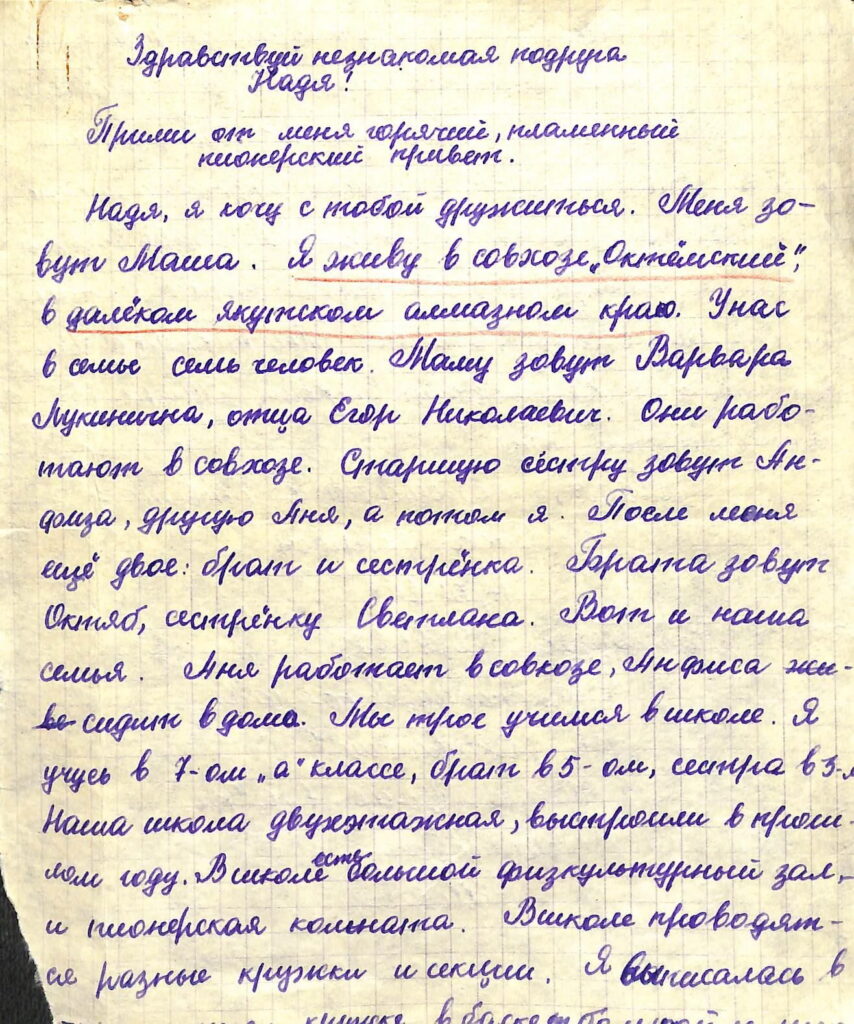 Здравствуй незнакомая подруга
Надя!
Прими от меня горячий, пламенный
пионерский привет.
Надя, я хочу с тобой дружиться. Меня зо-
вут Маша. Я живу в совхозе „Октёмский",
в далёком якутском алмазном краю. Унас
в семье семь человек. Маму зовут Варвара
Лукинична, отца Егор Николаевич. Они рабо-
тают в совхозе. Старшую сестру зовут Ан-
физа, другую Аня, а потом я. После меня
ещё двое: брат и сестрёнка. Брата зовут
Октяб, сестрёнку Светлана. Вот и наша
семья. Аня работает в совхозе, Анфиса жи-
ве сидит в дома. Мы трое учимся в школе. Я
учусь в 7-ом „а" классе, брат в 5-ом, сестра в 3-
Наша школа двухэтажная, выстроили в прош-
лом году. В школе есть большой физкультурный зал,
и пионерская комната. В школе проводят-
ся разные кружки и секции. Я выписалась в
кружке в баскетбольной и